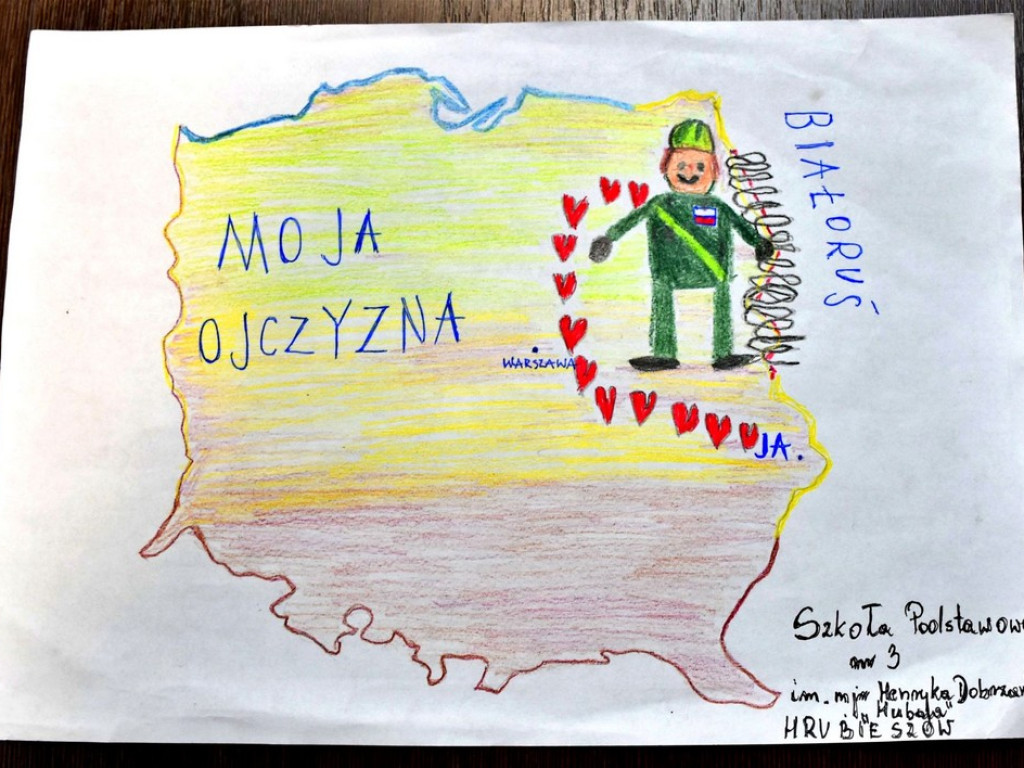 MOJA
OJCZYZNA
WARSZAWA
BIAŁORUŚ
JA.
Szkoła Podstawow
nr 3
im. mjr Henryka Dobrzań
"Hubala"
HRUBIESZÓW